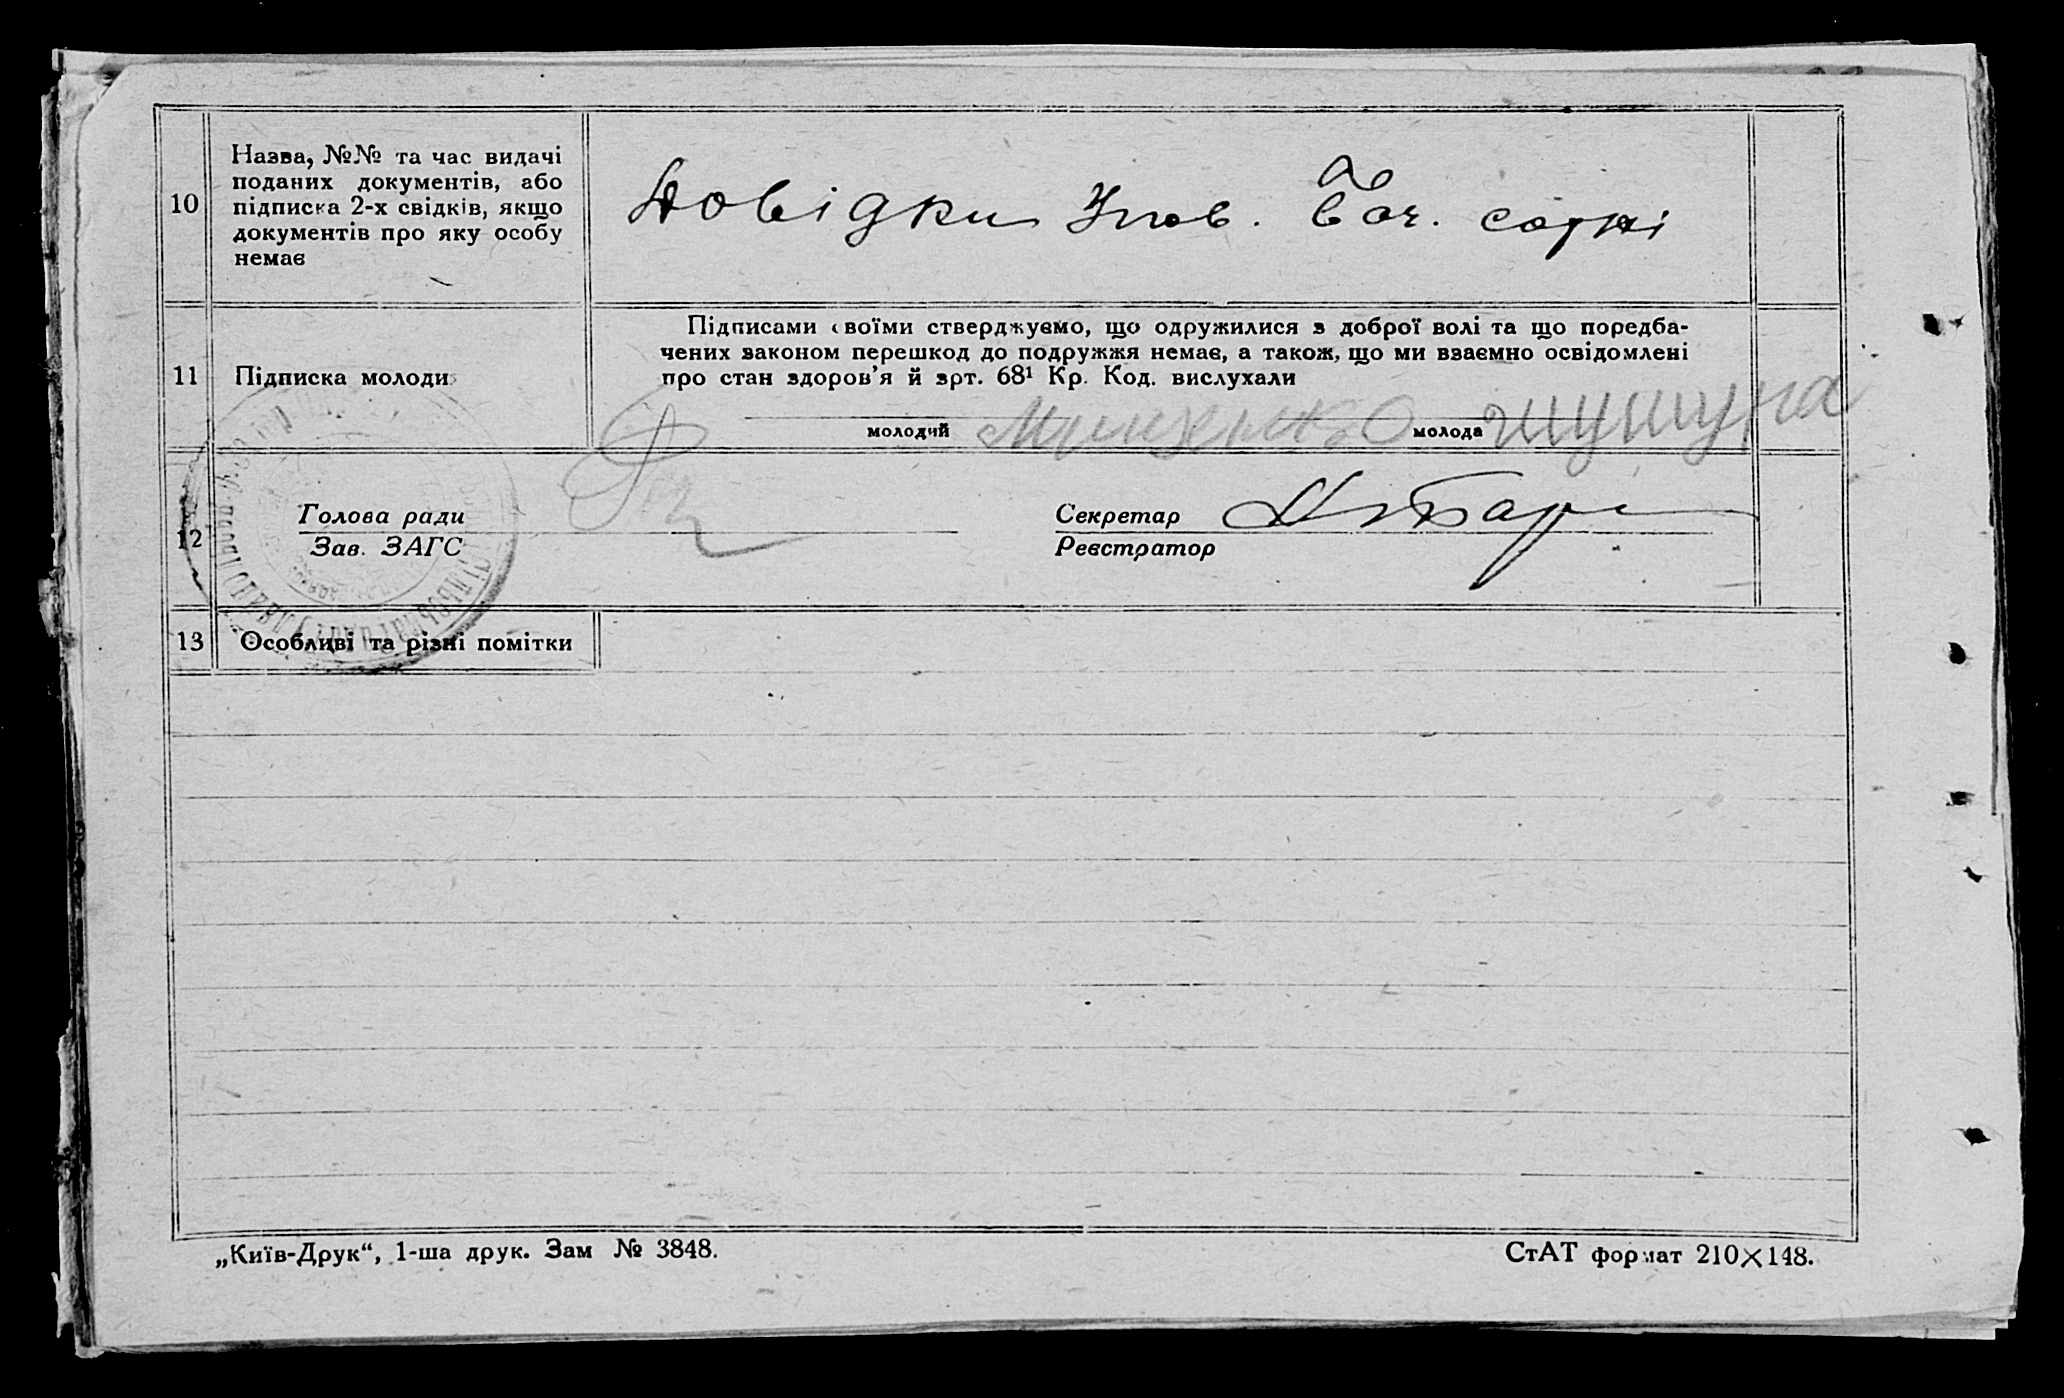 10
Назва, №№ та час видачі
поданих документів, або
підписка 2-х свідків, якщо
документів про яку особу
немає
Довідки Упов. Боч. сотні
11
Підписка молоди
Підписами своїми стверджуємо, що одружилися з доброї волі та що поредба-
чених законом перешкод до подружжя немає, а також, що ми взаємно освідомлені
про стан здоров’я й зрт. 68¹ Кр. Код. вислухали
молодий
молода
12
Голова ради
Зав. ЗАГС
Секретар
Реєстратор
13
Особливі та різні помітки
„Київ-Друк“, 1-ша друк. Зам № 3848.
СтАТ формат 210×148.